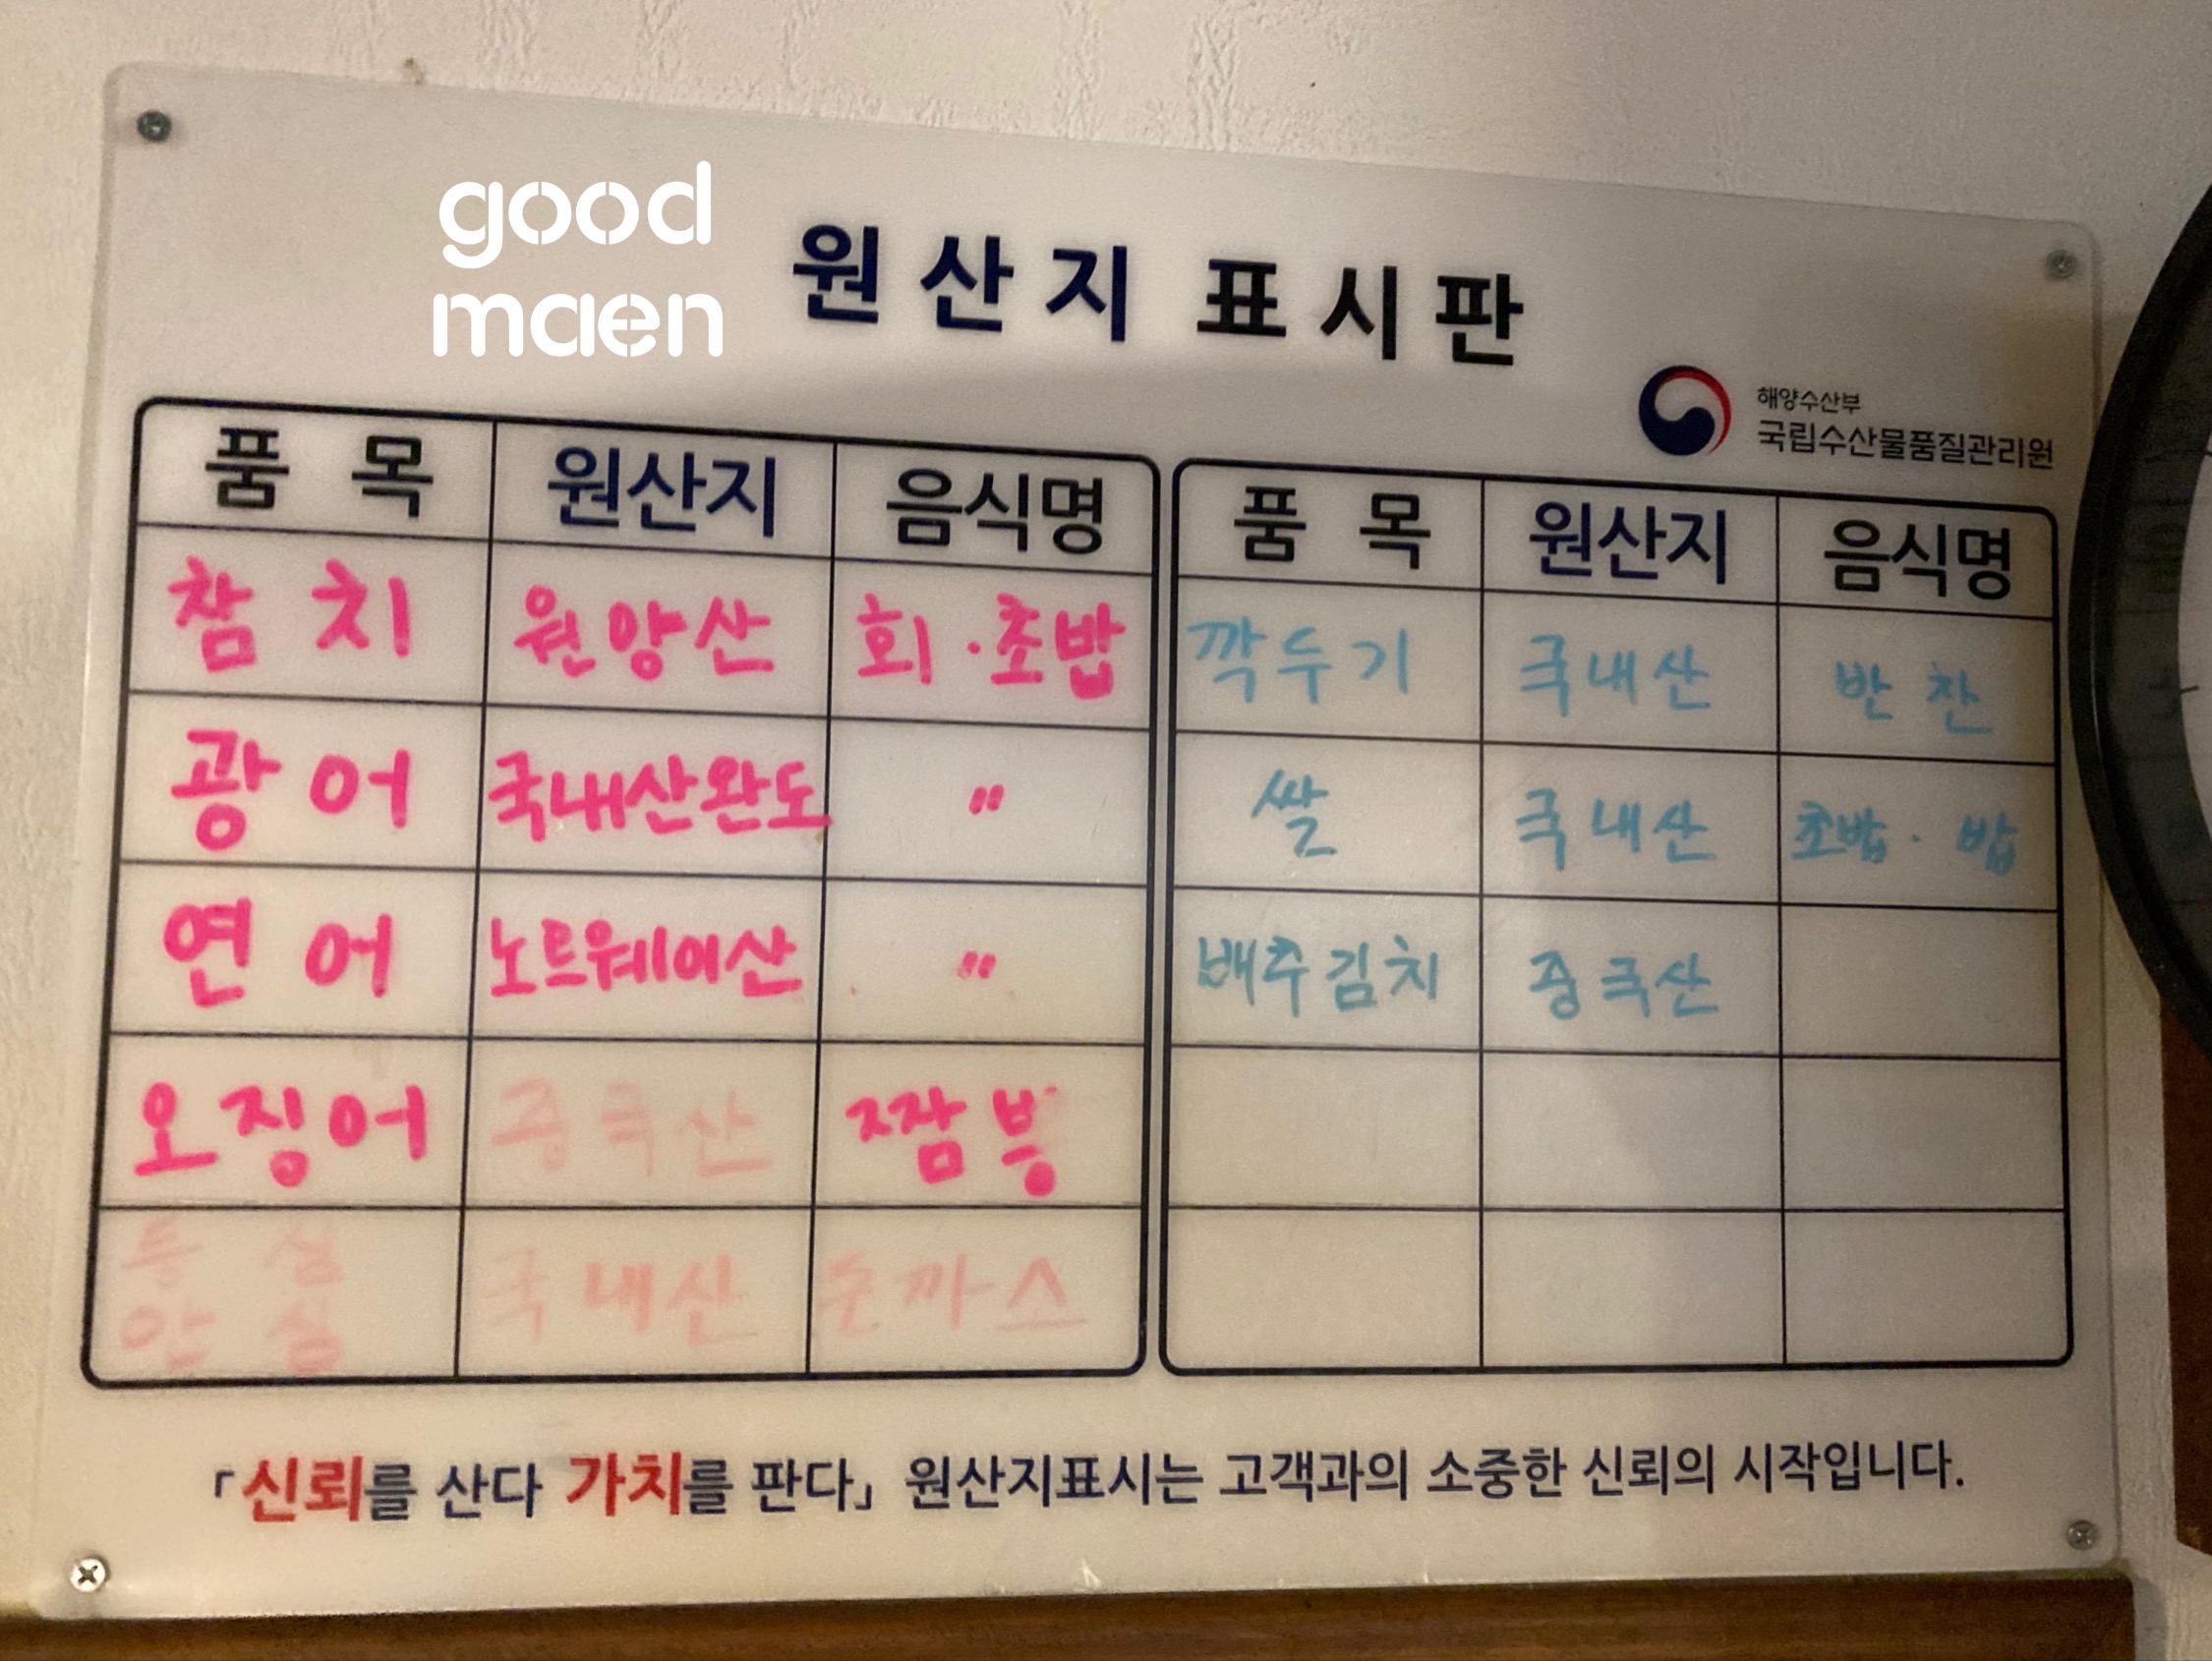 good
maen
원산지 표시판
해양수산부
국립수산물품질관리원
품 목 원산지 음식명
참 치 원양산 회·초밥
광 어 국내산완도 〃
연 어 노르웨이산 〃
오징어 중국산 짬뽕
등 심
안 심 국내산 돈까스
품 목 원산지 음식명
깍두기 국내산 반찬
쌀 국내산 초밥·밥
배추김치 중국산
「신뢰를 산다 가치를 판다」 원산지표시는 고객과의 소중한 신뢰의 시작입니다.